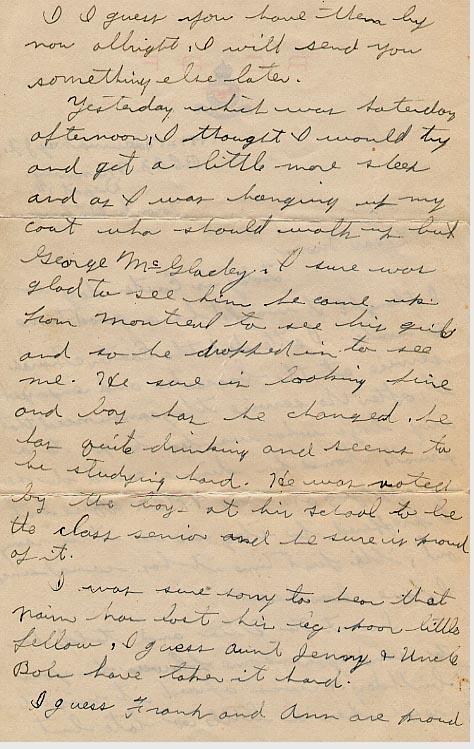 I I guess you have them by
now allright, I will send you
something else later.
Yesterday which was Saterday
afternoon, I thought I would try
and get a little more sleep
and as I was hanging up my
coat who should walk up but
George McGladey, I sure was
glad to see him he came up
from Montreal to see his girl
and so he dropped in to see
me. He sure is looking fine
and boy has he changed, he
has quite drinking and seems to
be studying hard. He was voted
by the boys at his school to be
the class senior and he sure is proud
of it.
I was sure sorry to hear that
has lost his leg, poor little
fellow, I guess aunt Jenny & Uncle
Bob have taken it hard.
I guess Frank and Ann are proud